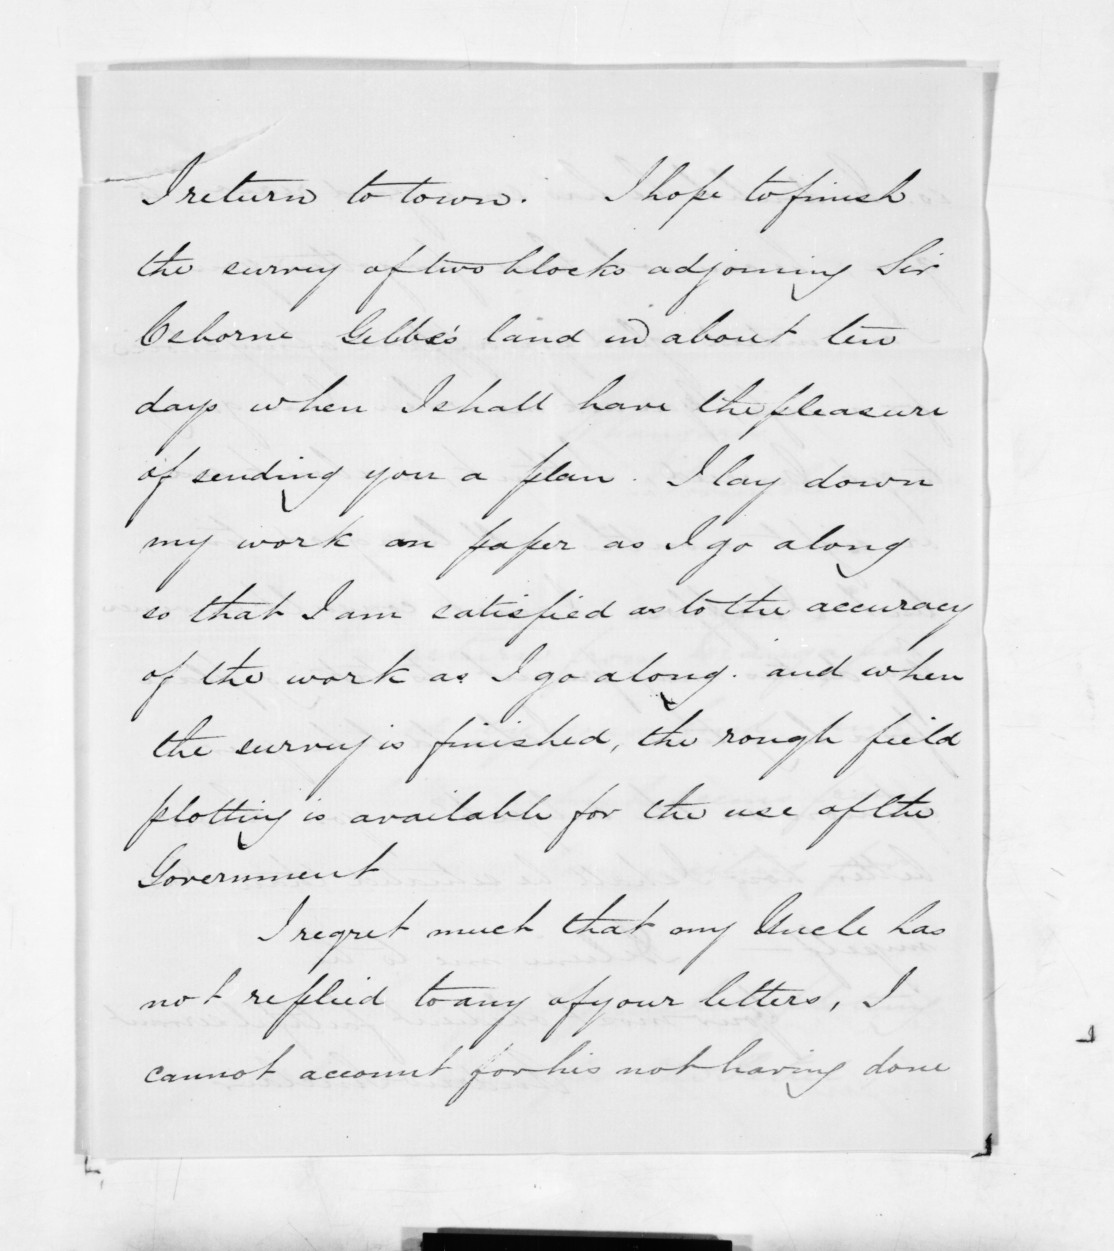 I return to town. I hope to finish
the survey of two blocks adjoining Sir
Osborne Gibbes's land in about ten
days when I shall have the pleasure
of sending you a plan. I lay down
my work on paper as I go along
so that I am satisfied as to the accuracy
of the work as I go along. and when
the survey is finished, the rough field
plotting is available for the use of the
Government
I regret much that my Uncle has
not replied to any of your letters, I
cannot account for his not having done